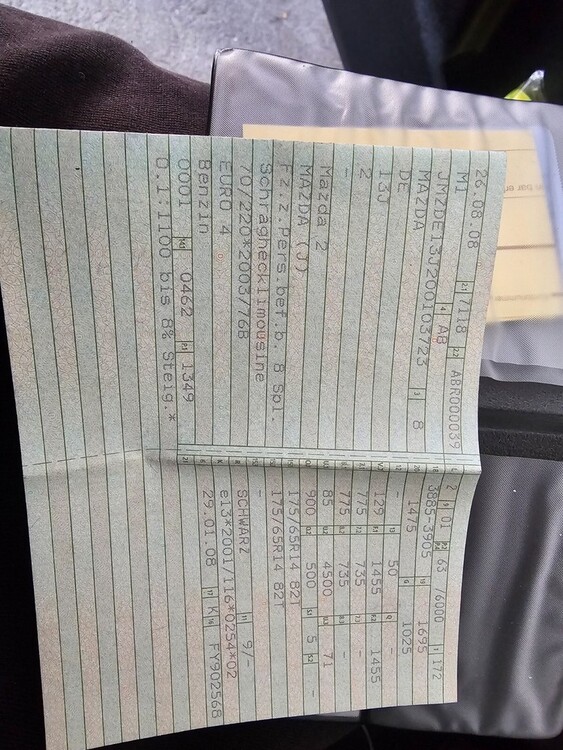 26.08.08 2.1 7118 2.2 ABR000039
M1 4 AB
JMZDE13J200103723 3 8
MAZDA
DE
13J
2
-
Mazda 2
MAZDA (J)
Fz.z.Pers.bef.b. 8 Spl.
Schräghecklimousine
70/220*2003/76B
EURO 4
Benzin
0001 0462 1349
0.1:1100 bis 8% Steig.*
L 2 9 01 63 /6000 172
18 3885-3905 19 1695
20 1475 G 1025
- 50 Q -
129 1455 1455
775 735 -
775 735 -
85 4500 71
900 500 5 -
175/65R14 82T
175/65R14 82T
-
SCHWARZ 11 9/-
K e13*2001/116*0254*02
6 29.01.08 17 K 16 FY902568
21